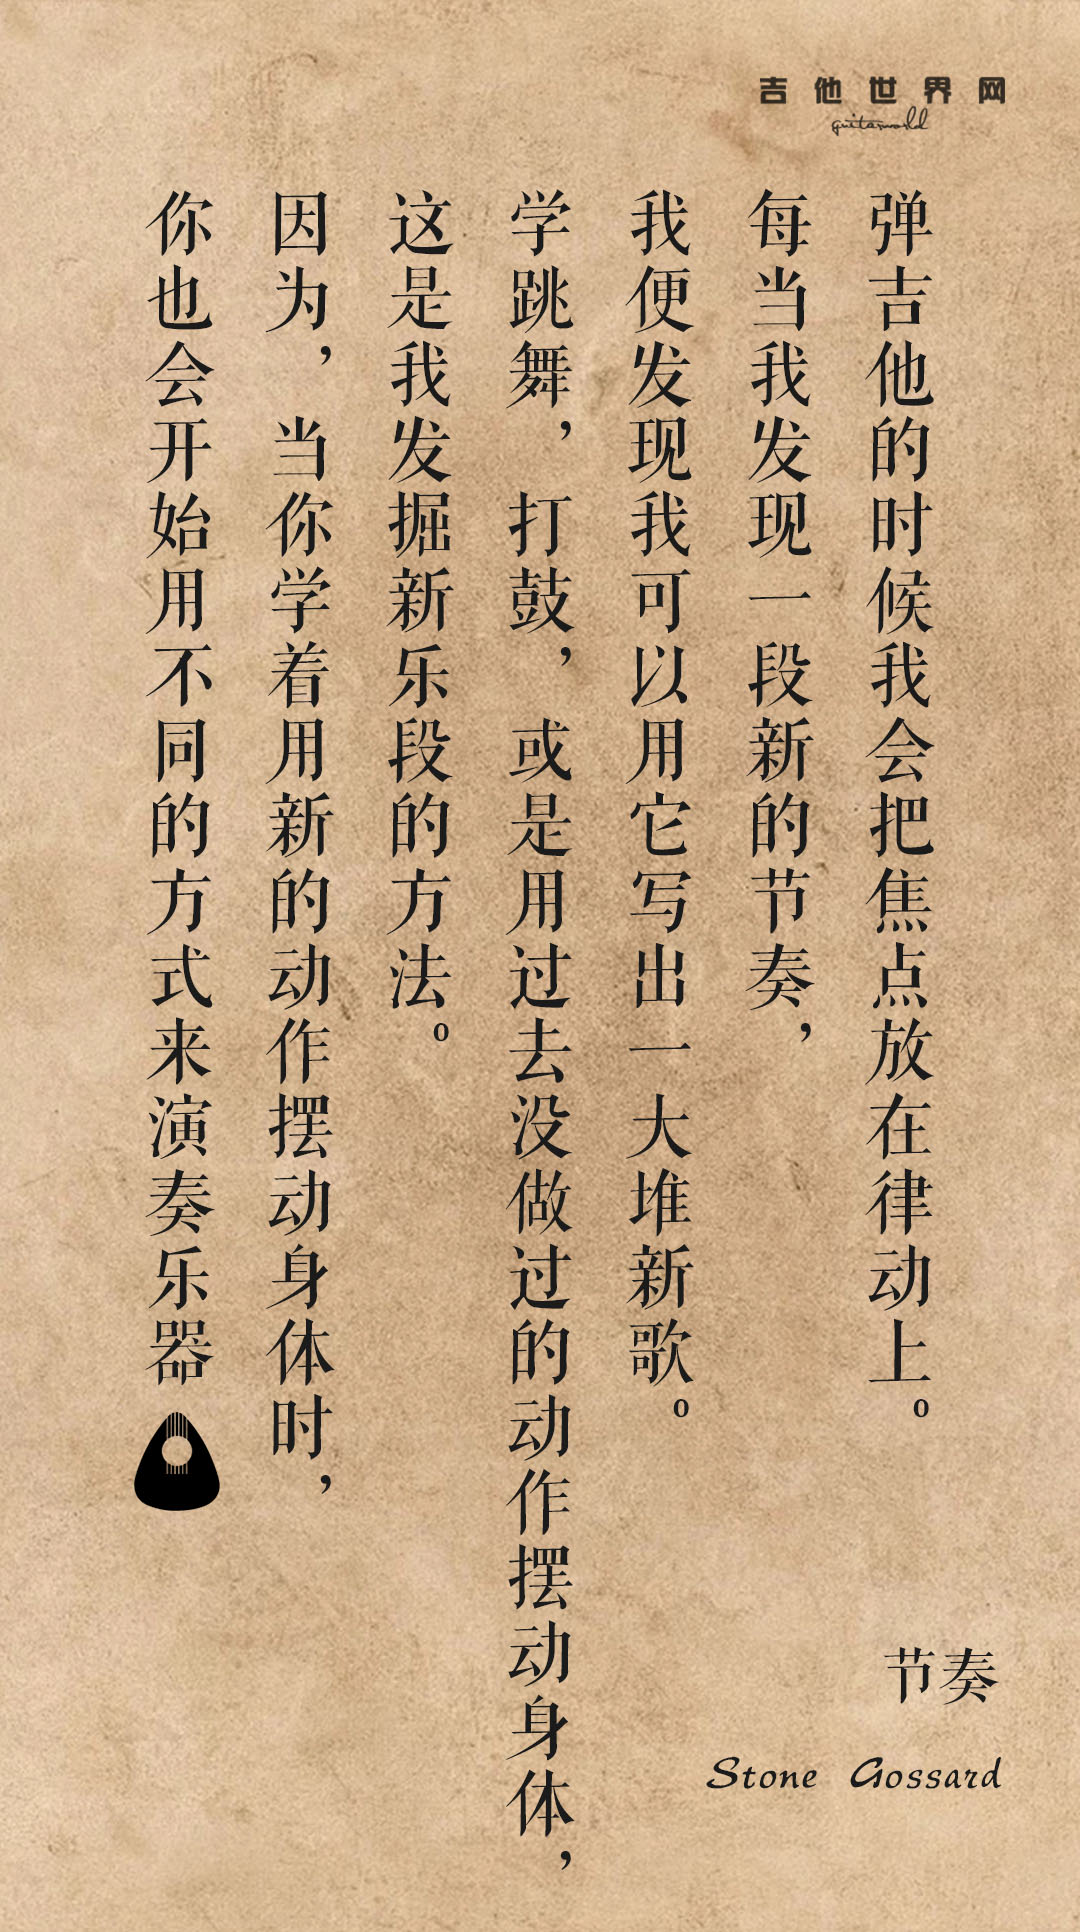 吉他世界网
guitarworld
弹吉他的时候我会把焦点放在律动上。
每当我发现一段新的节奏，
我便发现我可以用它写出一大堆新歌。
学跳舞，打鼓，或是用过去没做过的动作摆动身体，
这是我发掘新乐段的方法。
因为，当你学着用新的动作摆动身体时，
你也会开始用不同的方式来演奏乐器
节奏
Stone Gossard